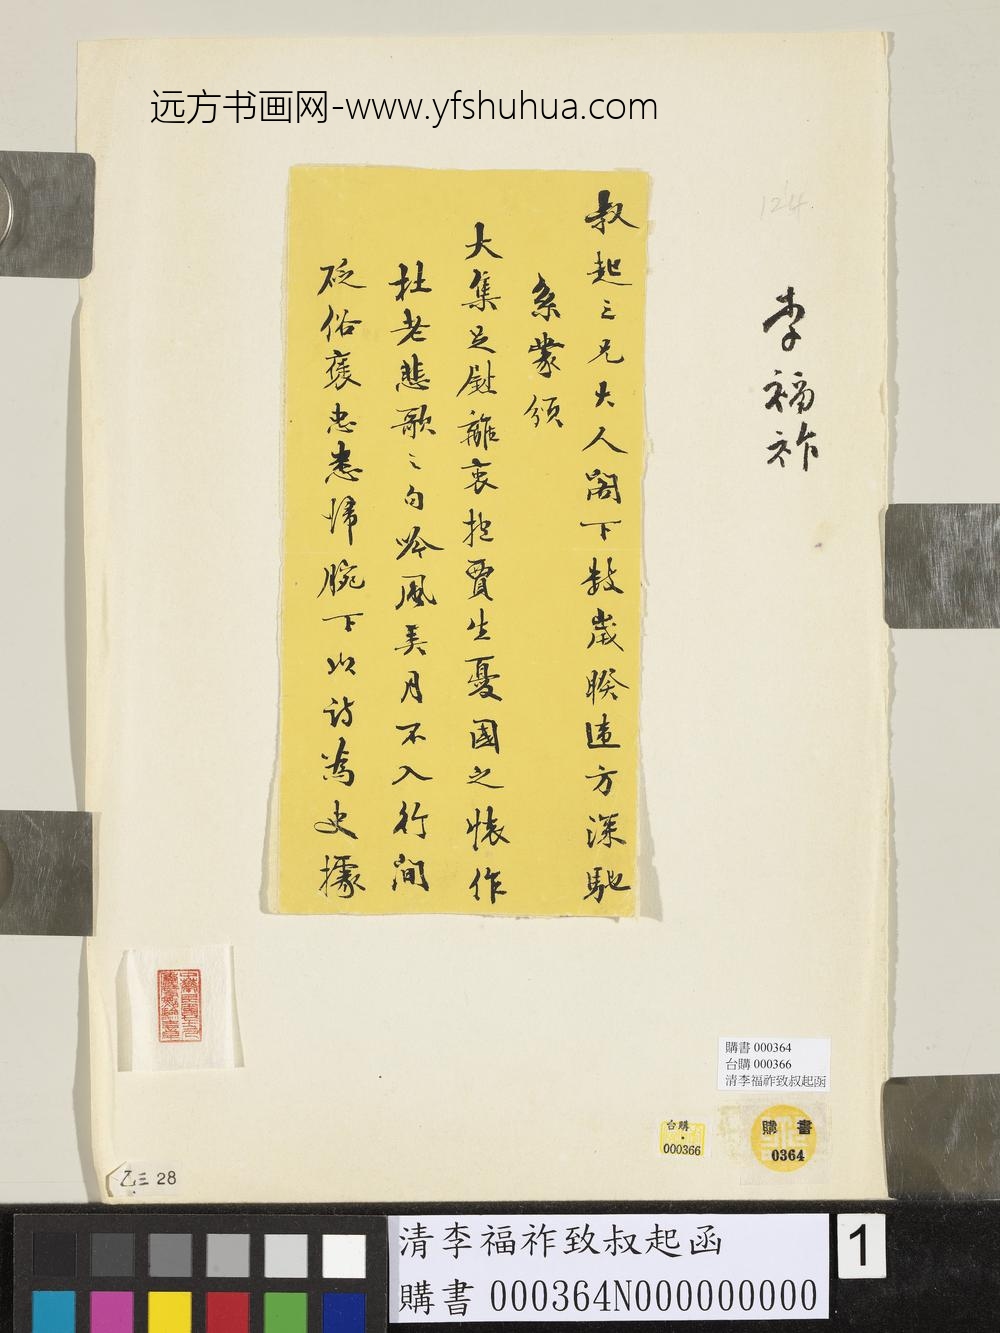 远方书画网-www.yfshuhua.com
124
李福祚
叔起三兄大人閣下数歳暌違方深馳
系蒙頒
大集足慰離衷抱賈生憂國之懐作
杜老悲歌之句吟風美月不入行間
砭俗褒忠悉歸腕下以詩為史據
購書 000364
台購 000366
清李福祚致叔起函
台購
000366
購書
0364
乙三 28
清李福祚致叔起函
購書 000364N000000000
1